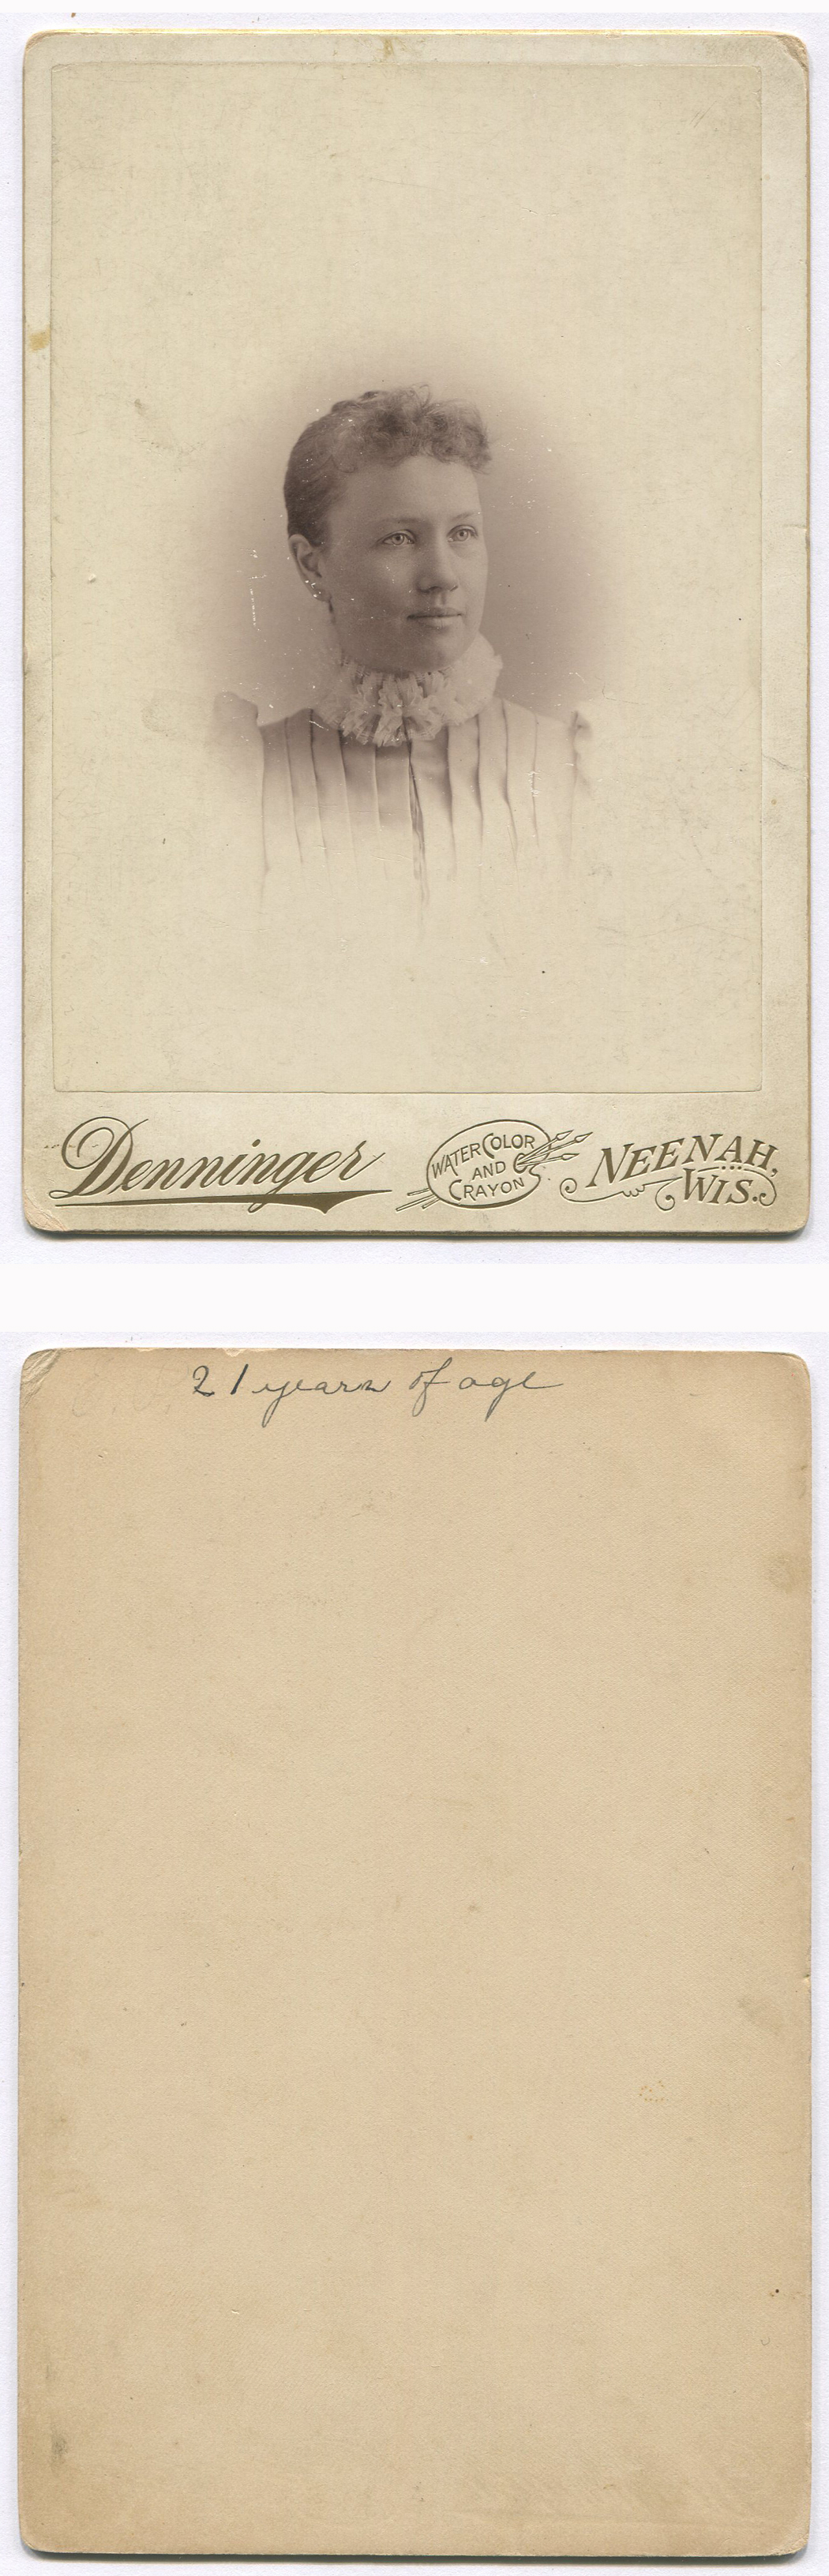 Denninger
WATER COLOR
AND
CRAYON
NEENAH,
WIS.
21 years of age